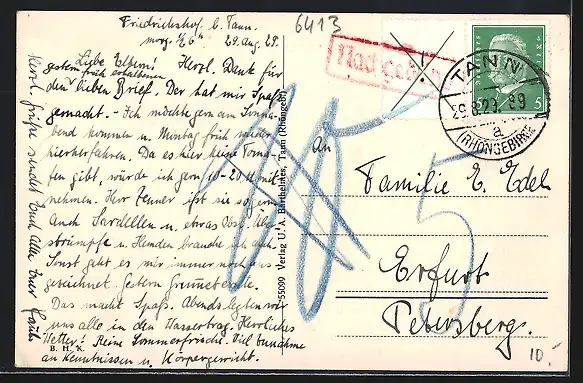 6413
Friedrichshof b. Tann.
morg. 1/2 6 h 29. Aug. 29.
Liebe Eltern! Herzl. Dank für
gestern früh erhaltenen
den lieben Brief. Der hat mir Spaß
gemacht. - Ich möchte gern am Sonna-
bend kommen u. Montag früh wieder
hierherfahren. Da es hier keine Toma-
ten gibt, würde ich gern 10-20 # mit-
nehmen. Herr Zenner ißt sie so gern.
Auch Sardellen u. etwas Obst.
strümpfe u. Hemden brauche ich auch.
Sonst geht es mir immer noch aus-
gezeichnet. Gestern Grummeternte.
Das macht Spaß. Abends legten wir
uns alle in den Wassertrog. Herrliches
Wetter! Reine Sommerfrische. Viel Zunahme
an Kenntnissen u. Körpergewicht.
Herzl. Grüße sendet Euch allen Euer Hans
B. H. K.
55009 Verlag U. A. Barthelmes, Tann (Rhöngebi)
Nachgebühr
TANN
29.8.29. 8-9
a
(RHÖNGEBIRGE)
5
An
Familie E. Edel
Erfurt
Petersberg.
10.-